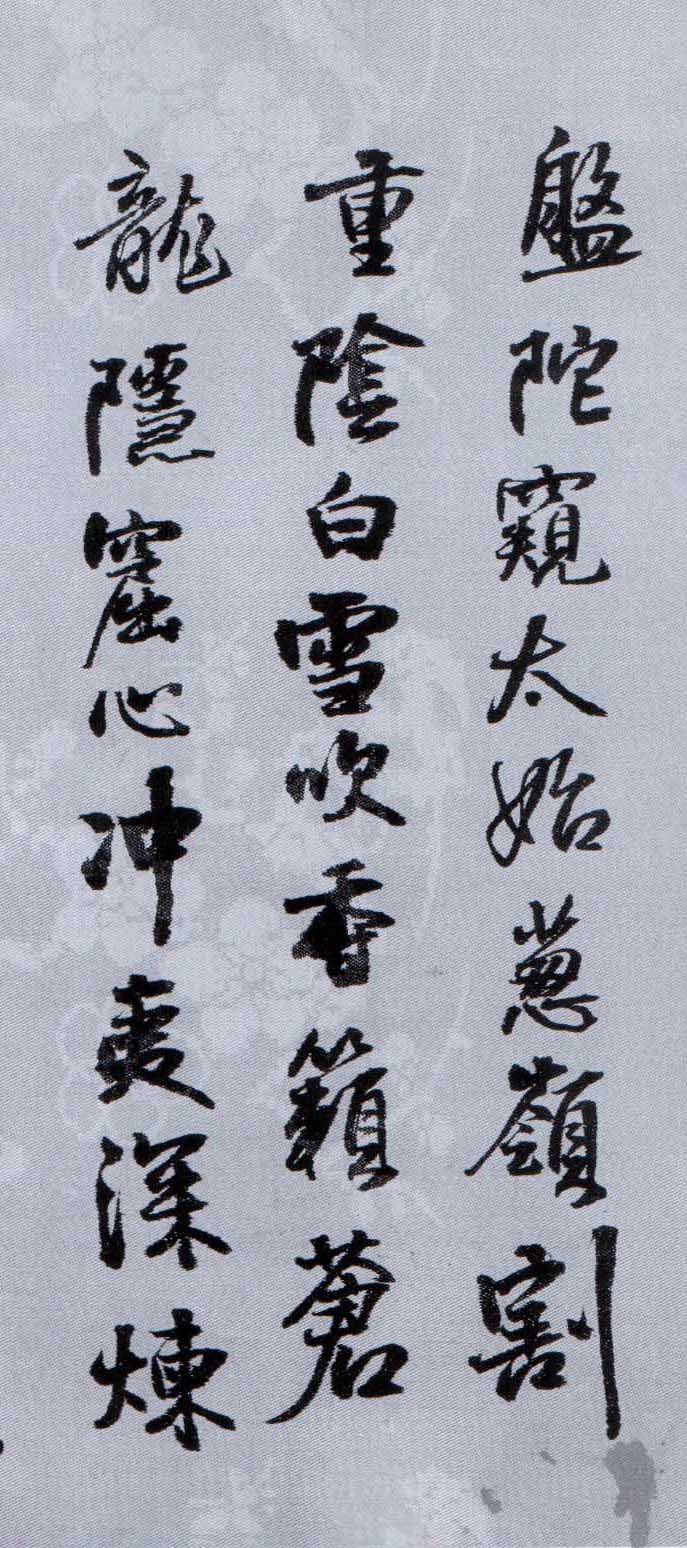 盤陀窺太始葱嶺割
重陰白雪吹香籟蒼
龍隱窟心冲夷深煉